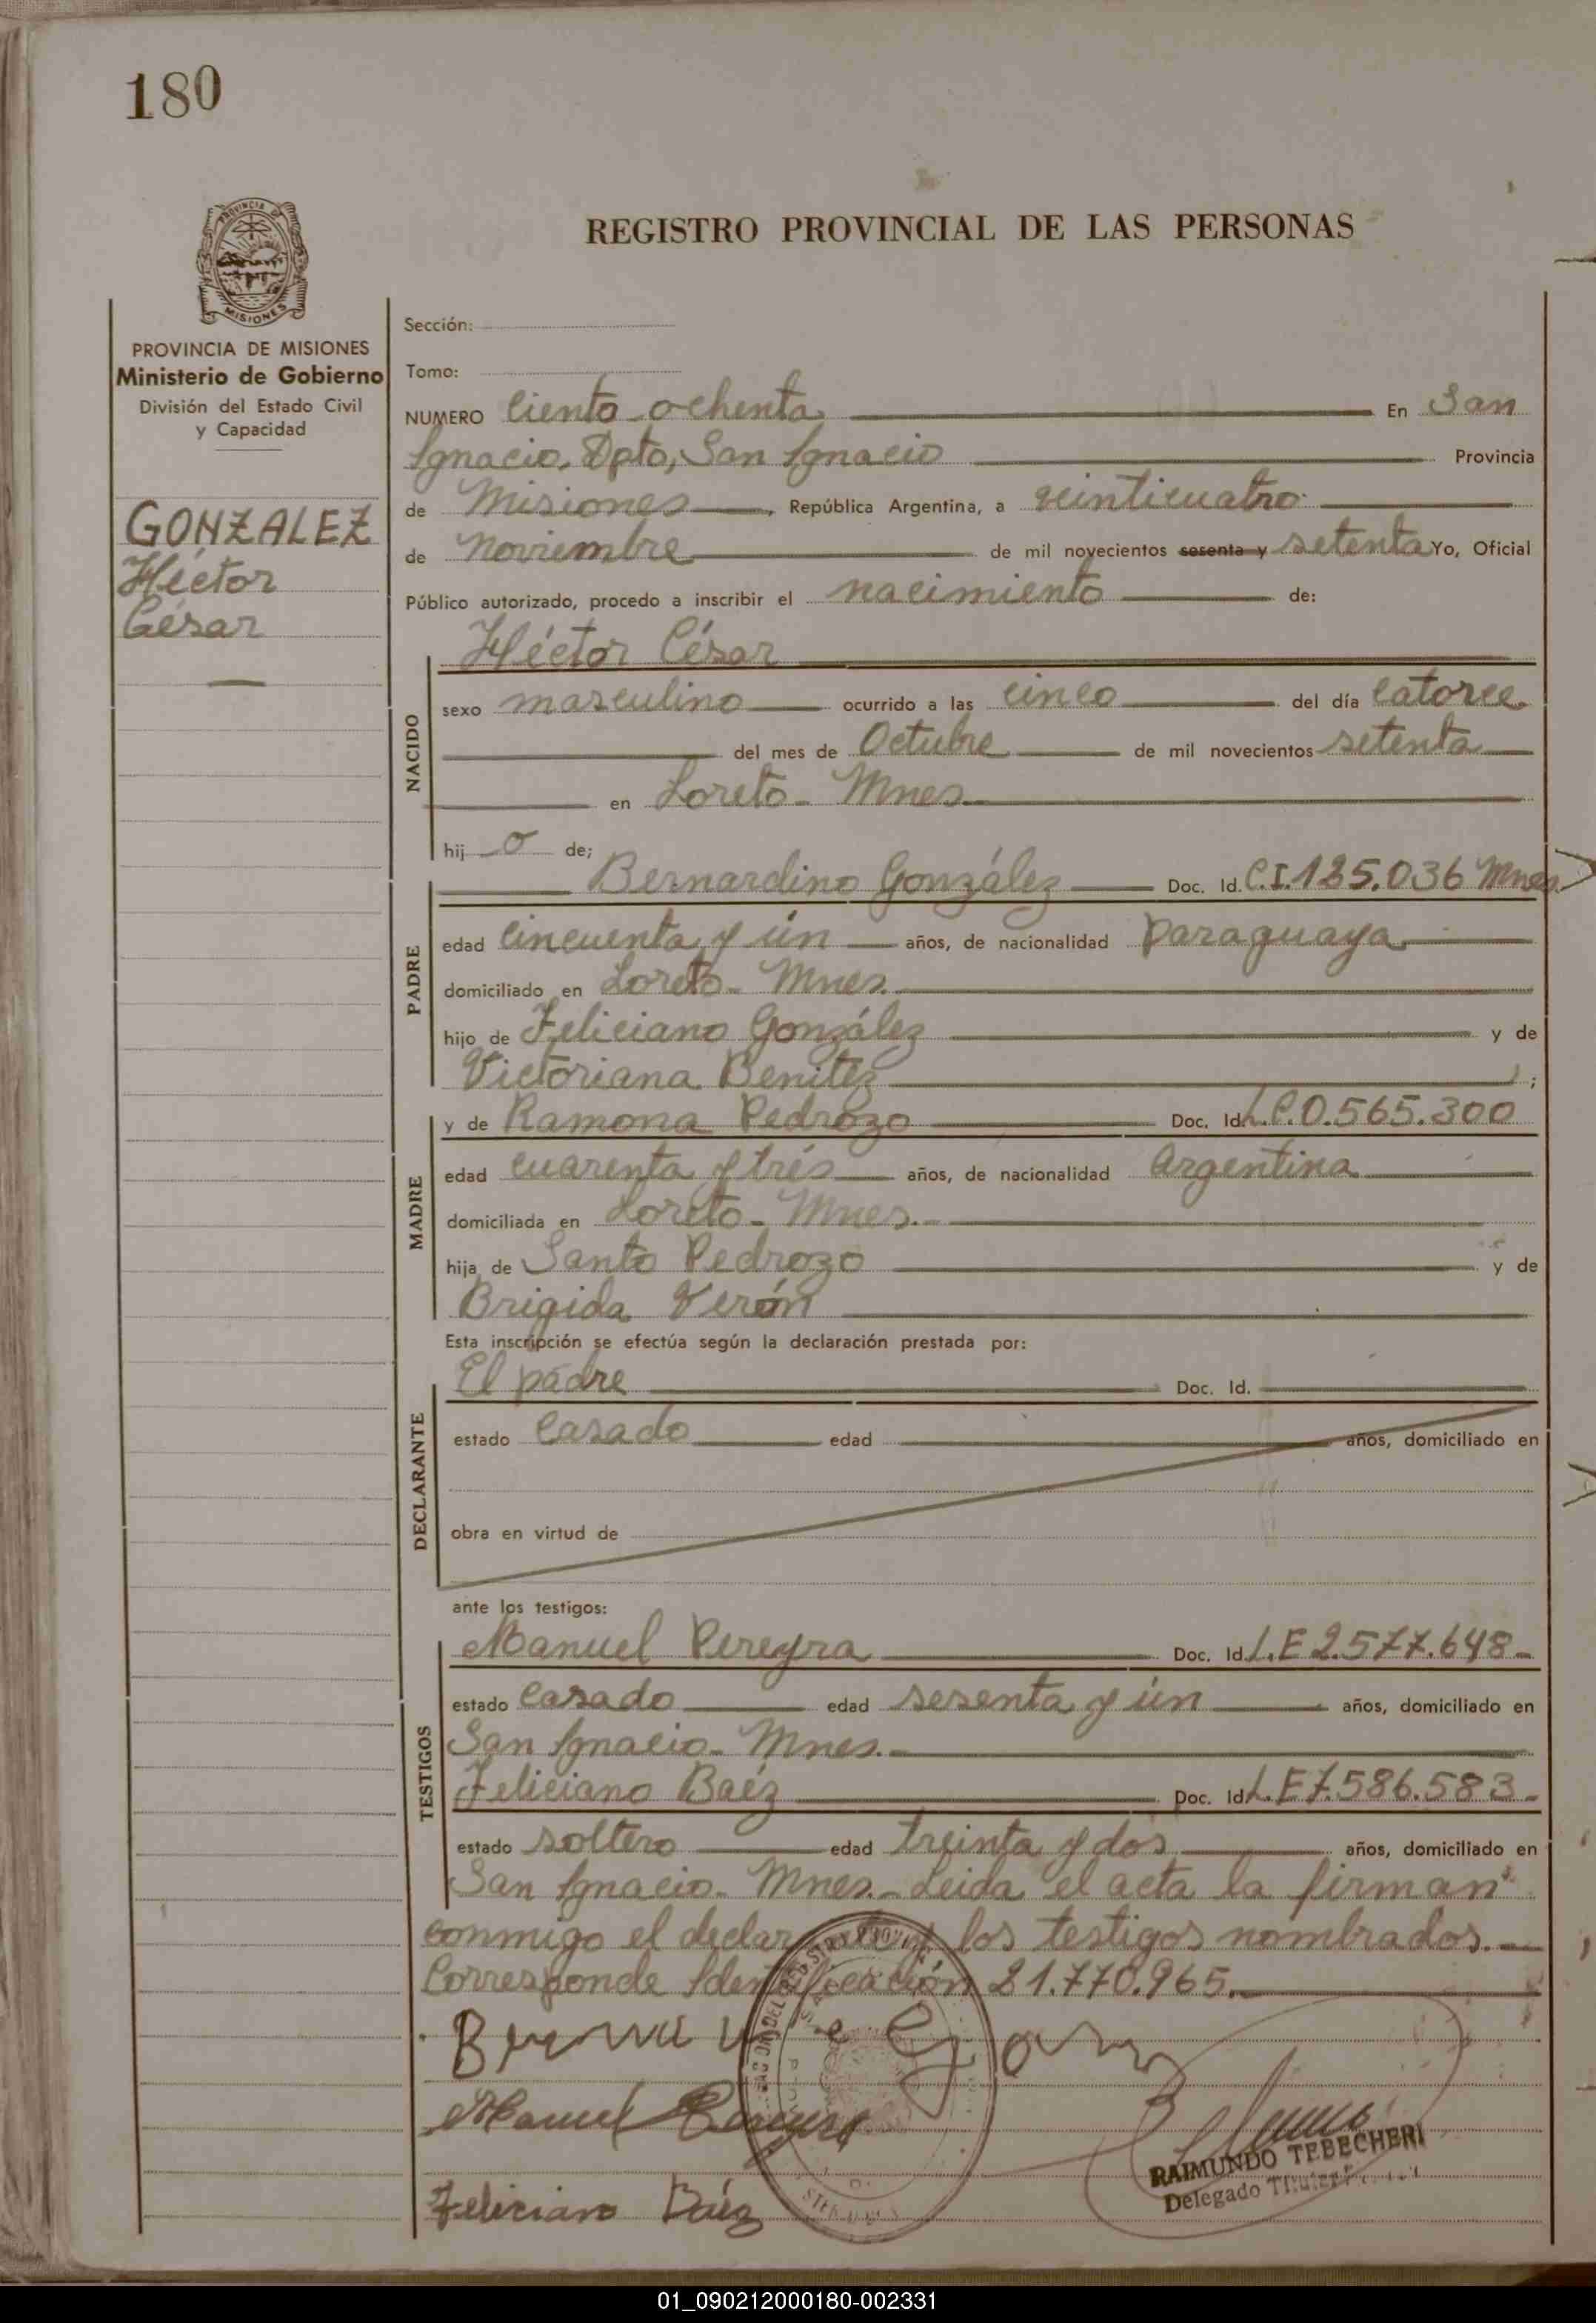 180
REGISTRO PROVINCIAL DE LAS PERSONAS
PROVINCIA DE MISIONES
PROVINCIA DE MISIONES
Ministerio de Gobierno
División del Estado Civil
y Capacidad
GONZALEZ
Héctor
César
Sección:
Tomo:
NUMERO Ciento ochenta En San
Ignacio, Dpto, San Ignacio Provincia
de Misiones, República Argentina, a veinticuatro
de Noviembre de mil novecientos sesenta y setenta Yo, Oficial
Público autorizado, procedo a inscribir el nacimiento de:
Héctor César
NACIDO
sexo masculino ocurrido a las cinco del día catorce
del mes de Octubre de mil novecientos setenta
en Loreto - Mnes
hij o de;
Bernardino González Doc. Id. C.I. 125.036 Mnes
PADRE
edad Cincuenta y ún años, de nacionalidad Paraguaya
domiciliado en Loreto - Mnes.
hijo de Feliciano González y de
Victoriana Benitez ;
y de Ramona Pedrozo Doc. Id. L.C. 0.565.300
MADRE
edad cuarenta y trés años, de nacionalidad Argentina
domiciliada en Loreto - Mnes.-
hija de Santo Pedrozo y de
Brigida Verón
Esta inscripción se efectúa según la declaración prestada por:
El padre Doc. Id.
DECLARANTE
estado Casado edad años, domiciliado en
obra en virtud de
ante los testigos:
Manuel Pereyra Doc. Id. L.E 2.577.648-
TESTIGOS
estado Casado edad sesenta y ún años, domiciliado en
San Ignacio - Mnes.-
Feliciano Baéz Doc. Id. L.E 7.586.583-
estado soltero edad treinta y dos años, domiciliado en
San Ignacio - Mnes.- Leida el acta la firman
conmigo el declarante y los testigos nombrados.-
Corresponde Identificación 21.770.965.
Manuel Pereyra
RAIMUNDO TEBECHERI
Delegado Titular
Feliciano Baéz
01_090212000180-002331